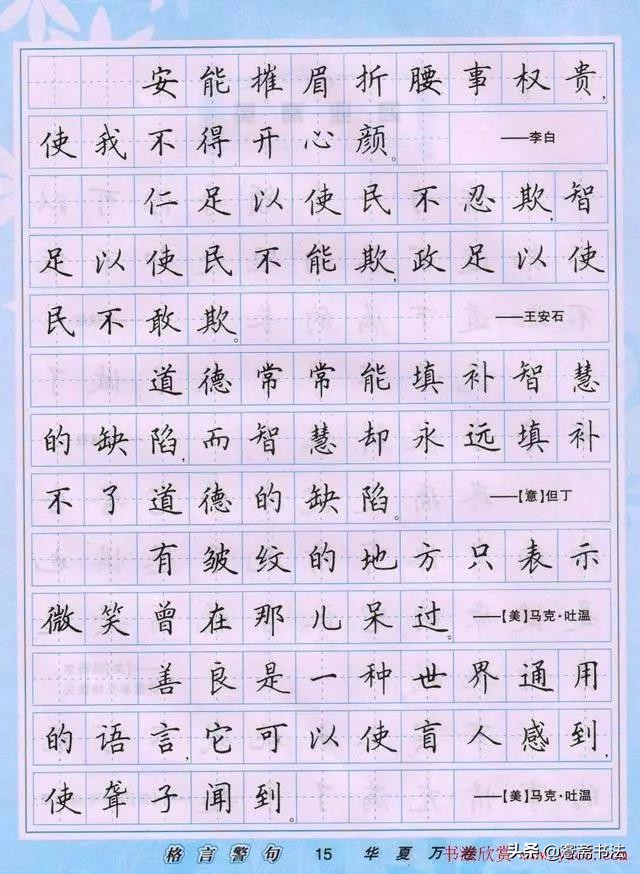 安能摧眉折腰事权贵,
使我不得开心颜。 ——李白
仁足以使民不忍欺,智
足以使民不能欺,政足以使
民不敢欺。 ——王安石
道德常常能填补智慧
的缺陷,而智慧却永远填补
不了道德的缺陷。 ——【意】但丁
有皱纹的地方只表示
微笑曾在那儿呆过。 ——【美】马克·吐温
善良是一种世界通用
的语言,它可以使盲人感到,
使聋子闻到。 ——【美】马克·吐温
格言警句 15 华夏万卷
书法欣赏
头条@鸳斋书法